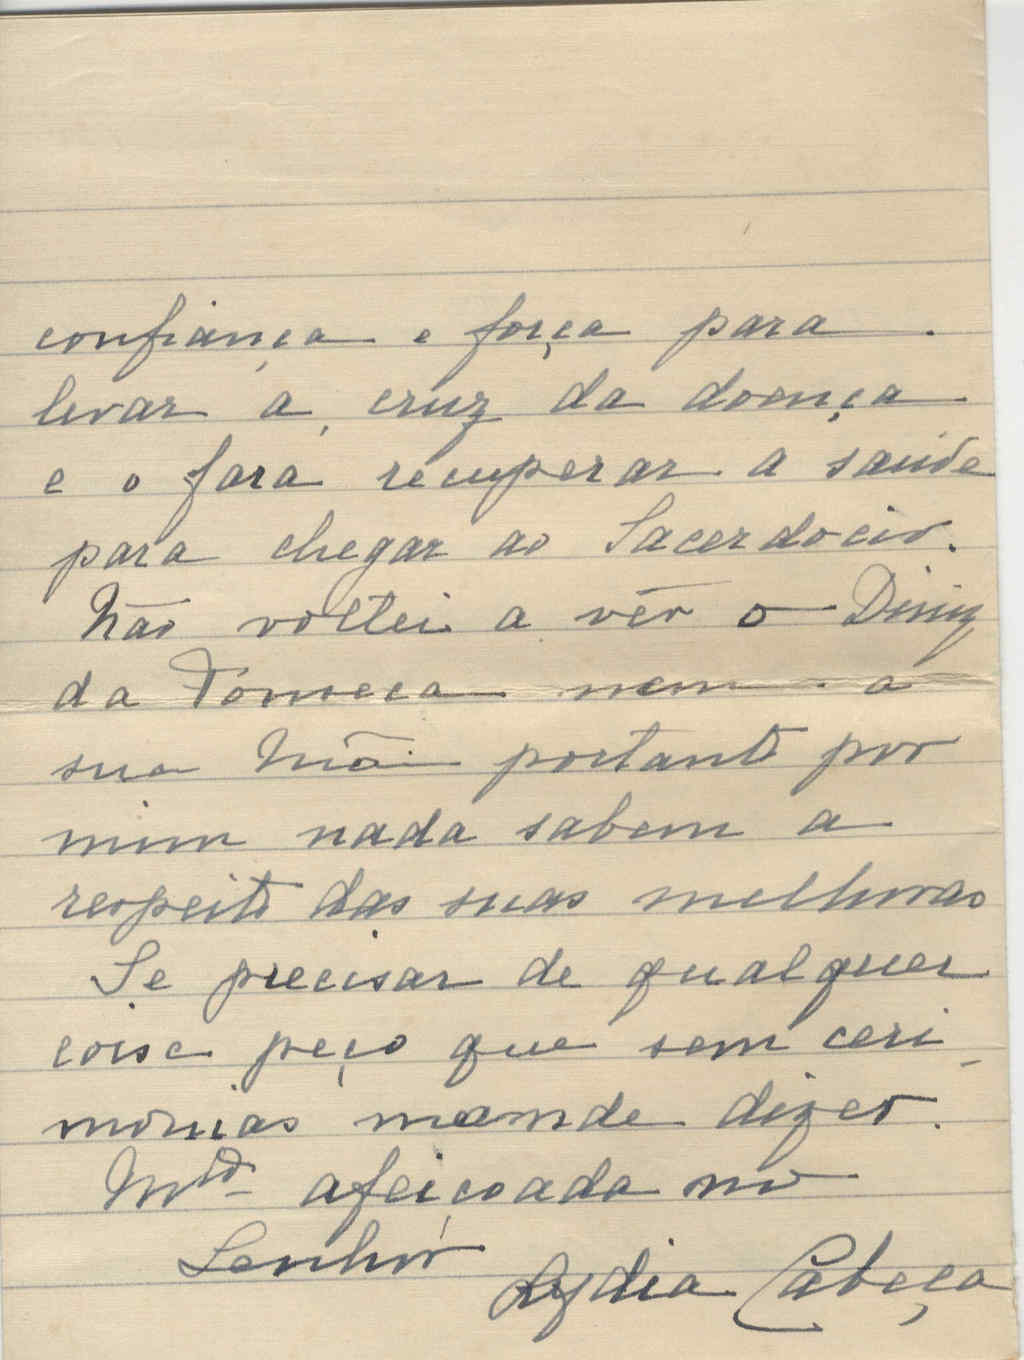 confiança e força para
levar a cruz da doença
e o fará recuperar a saúde
para chegar ao Sacerdocio.
Não voltei a vêr o Diniz
da Fonseca nem a
sua Mãi portanto por
mim nada sabem a
respeito das suas melhoras
Se precisar de qualquer
coisa peço que sem ceri-
monias mande dizer.
Mto afeiçoada no
Senhor
Lydia Cabeça